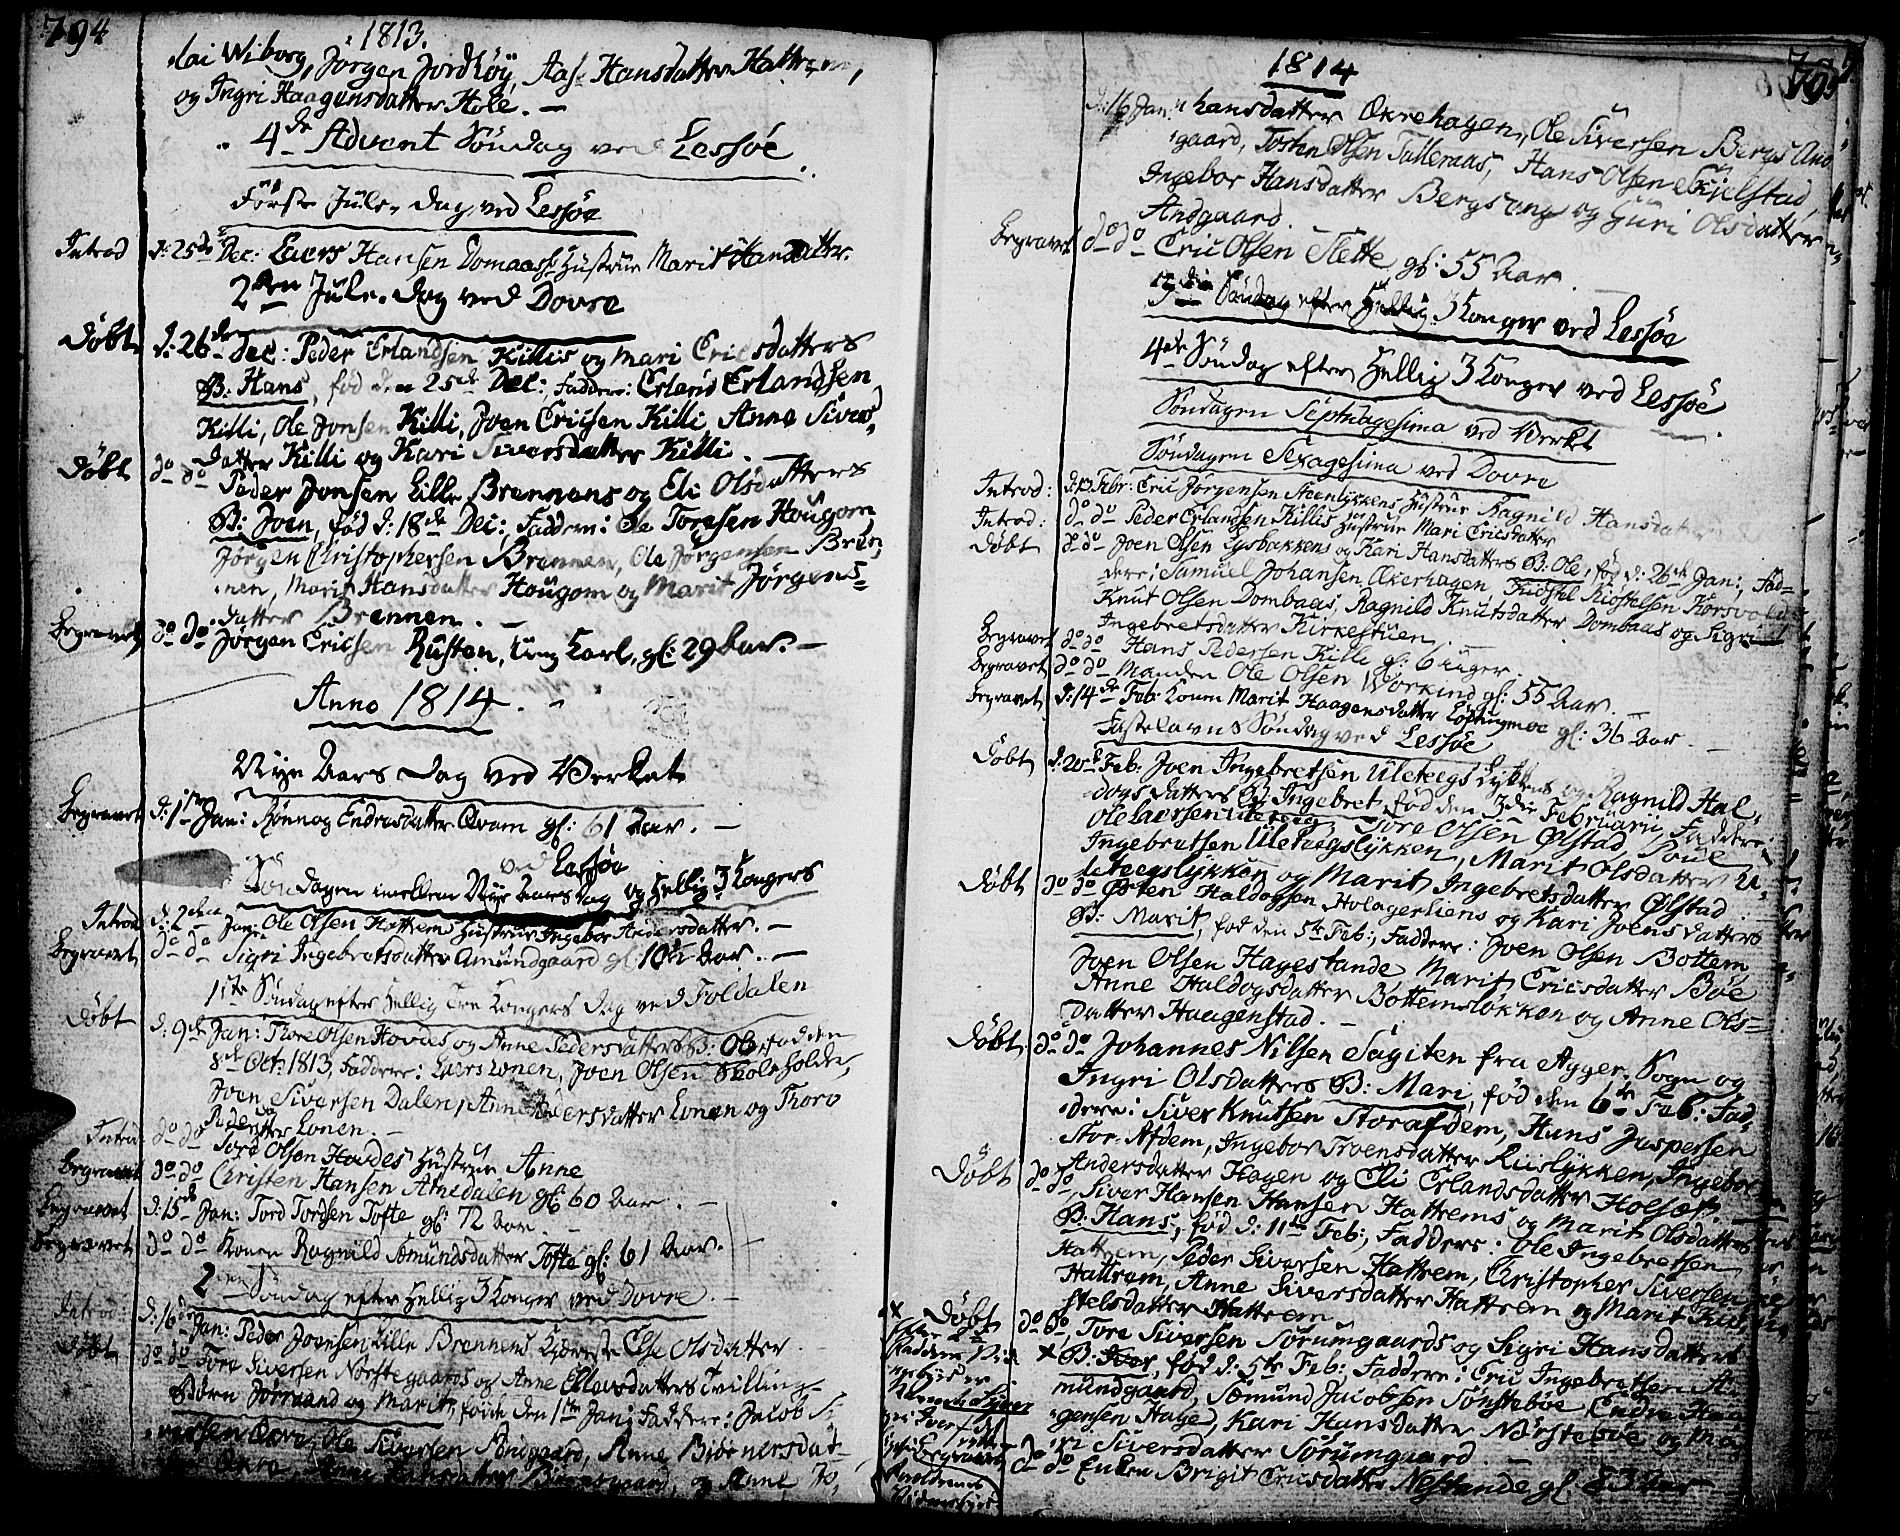 794
1813.
lai Wiborg, Jørgen Jordhøÿ, Aase Hansdatter Hattrem,
og Ingri Haagensdatter Hole. —
4de Advent Søndag ved Lessøe
Første Jule-Dag ved Lessøe
Introd d: 25de Dec: Laers Hansen Domaas's Hustrue Marit Hansdatter.
2den Jule-Dag ved Dovre
Døbt d: 26de Dec: Peder Erlandsen Killis og Mari Ericsdatters
B: Hans, fød den 25de Dec: Faddere: Erland Erlandsen
Killi, Ole Jonsen Killi, Joen Ericsen Killi, Anne Sivers
datter Killi og Kari Siversdatter Killi. —
Døbt do do Peder Jonsen Lille Brennens og Eli Olsdatters
B: Joen, fød d: 18de Dec:, Faddere: Ole Toresen Hougom
Jørgen Christophersen Brennen, Ole Jørgensen Bren
nen, Marit Hansdatter Hougom og Marit Jørgens=
datter Brennen. —
Begravet do do Jørgen Ericsen Rusten, ung Karl, gl: 29 Aar. —
Anno 1814.
Nÿe Aars Dag ved Verket
Begravet d: 1ste Jan: Rønnog Endresdatter Qvam gl: 61 Aar. —
ved Lessøe
Søndagen imellem Nÿe Aars Dag og Hellig 3 Kongers
Introd d: 2den Jan: Ole Olsen Hattrems Hustrue Ingebor Andersdatter. —
Begravet do do Sigri Ingebretsdatter Amundgaard gl: 10 Aar. —
1ste Søndag efter Hellig Tre Kongers Dag ved Foldalen
Døbt d: 9de Jan: Thore Olsen Hovdes og Anne Pedersdatters B: Ole, fød den
8de Oct: 1813, Faddere: Laers Lonen, Joen Olsen Skoleholder,
Joen Siversen Dalen, Anne Pedersdatter Lonen og Thoro
Pedersdatter Lonen. —
Introd: do do Tore Olsen Hovdes Hustrue Anne
Begravet do do Christen Hansen Atnedalen gl: 60 Aar. —
Begravet d: 15de Jan: Tord Tordsen Tofte gl: 72 Aar —
Begravet do do Konen Ragnild Sømundsdatter Tofte gl: 61 Aar. —
2den Søndag efter Hellig 3 Konger ved Dovre. —
Introd: d: 16de Jan: Peder Joensen Lille Brennens Kjæreste Else Olsdatter
Døbt do do Tore Siversen Norstegaards og Anne Ellevsdatters Tvilling-
Børn Jørrand og Marit, føde den 1ste Jan: Faddere: Jacob Si
versen Qvre, Ole Siversen Sondgaard, Anne Biørnersdat-
Anne Hansdatter og Anne Jo,
1814
795
d: 16 Jan: hansdatter Økrehagen, Ole Siversen Bergs And
gaard, Tosten Olsen Talleraas, Hans Olsen Kielstad
Ingebor Hansdatter Bergseng og Guri Olsdatter
Andgaard.
Begravet do do Eric Olsen Slette gl: 55 Aar.
3die Søndag efter Hellig 3 Konger ved Lessøe
4de Søndag efter Hellig 3 Konger ved Lessøe
Søndagen Septuagesima ved Verket
Søndagen Sexagesima ved Dovre
Introd: d: 13 Febr: Eric Jørgensen Steenløkkens Hustrue Ragnild Hansdatter
Introd: do do Peder Erlandsen Killis Hustrue Mari Ericsdatter
Døbt do do Joen Olsen Lÿsbakkens og Kari Hansdatters B: Ole, fød d: 26de Jan:, Fad=
dere: Samuel Johansen Økerhagen, Kiøstel Kiøstelsen Korsvolden
Knut Olsen Dombaas, Ragnild Knutsdatter Dombaas og Sigri
Ingebretsdatter Kirkestuen
Begravet do do Hans Pedersen Killi gl: 6 Uger.
Begravet do do Manden Ole Olsen Workind gl: 55 Aar. —
Begravet d: 14de Feb: Konen Marit Haagensdatter Løftingmoe gl: 36 Aar. —
Fastelavns Søndag ved Lessøe
Døbt d: 20de Feb: Joen Ingebretsen Uleteegs Løkkens og Ragnild Hal
dogsdatters B: Ingebret, fød den 3die Februarii, Faddere:
Ole Laersen Uleteeg, Tore Olsen Ølstad, Poul
Ingebretsen Uleteegsløkken, Marit Olsdatter U-
leteegsløkken og Marit Ingebretsdatter Ølstad.
Døbt do do Østen Haldogsen Holagerliens og Kari Joensdatters
B: Marit, fød den 5te Feb:, Faddere: Joen Olsen Bottem
Joen Olsen Hagestande, Marit Ericsdatter Bøe
Anne Haldogsdatter Bottemsløkken og Anne Ols=
datter Haagenstad. —
Døbt do do Johannes Nilsen Sagiten fra Agger Sogn og
Ingri Olsdatters B: Mari, fød den 6te Feb: Fad,
dere: Siver Knutsen Storafdem, Hans Jaspersen
Stor-Afdem, Ingebor Troensdatter Riisløkken, Ingebor
Andersdatter Hagen og Eli Erlandsdatter Holsæt.
Døbt do do, Siver Hansen Hansen Hattrems og Marit Olsdatters
B: Hans, fød d: 11te Feb:, Faddere: Ole Ingebretsen
Hattrem, Peder Siversen Hattrem, Christopher Siversen
Hattrem, Anne Siversdatter Hattrem og Marit Kiø,
stelsdatter Hattrem
Døbt do do, Tore Siversen Sørumgaards og Sigri Hansdatters
× B: Iver, fød d: 5te Feb: Faddere: Eric Ingebretsen A
mundgaard, Sømund Jacobsen Sønstebøe, Endre Haa
gensen Hage, Kari Hansdatter Nørstebøe og Ma
ri Siversdatter Sørumgaard. —
do do Enken Brigit Ericsdatter Nestande gl: 83 Aar —